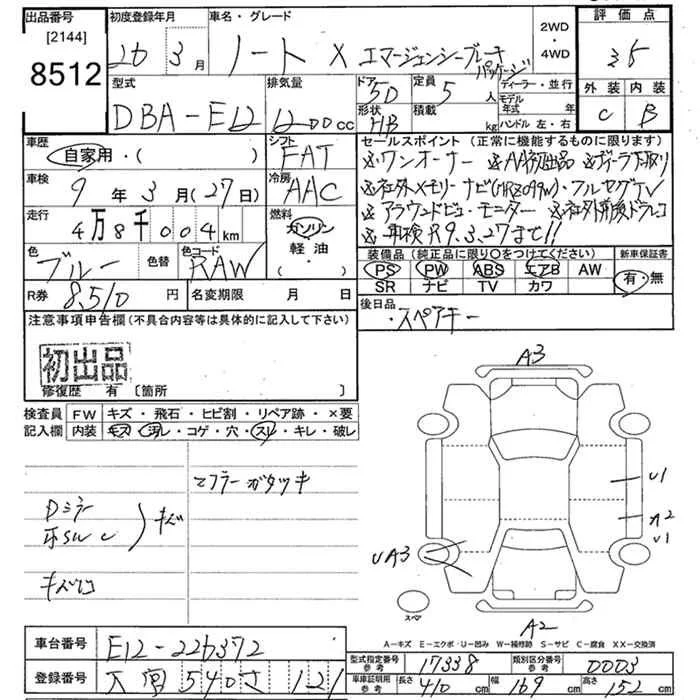 出品番号 初度登録年月 車名・グレード 2WD・4WD 評価点
[2144]
8512 26 3月 ノート X エマージェンシーブレーキ パッケージ 35
型式 排気量 ドア 5D 定員 5人 ディーラー・並行 外装 内装
DBA-E12 1200cc 形状 HB 積載 kg モデル年式 年 ハンドル 左・右 C B
車歴 シフト セールスポイント (正常に機能するものに限ります)
自家用・( ) FAT ※ワンオーナー ※AA初出品 ※ディーラー下取り
車検 9年3月(27日) 冷房 AAC ※社外メモリーナビ ・フルセグTV
走行 4万8千004km 燃料 ガソリン 軽油 ・( ) ※アラウンドビューモニター ※社外前後ドラレコ
※車検R9.3.27まで!!
色 ブルー 色替 色コード RAW 装備品 (純正品に限り○をつけてください) 新車保証書
PS PW ABS エアB AW 有・無
SR ナビ TV カワ
R券 8,510円 名変期限 月 日 後日品
・スペアキー
注意事項申告欄(不具合内容等は具体的に記入して下さい)
初出品
修復歴 有 [箇所 ]
A3
検査員 FW キズ・飛石・ヒビ割・リペア跡・×要
記入欄 内装 キズ・汚レ・コゲ・穴・スレ・キレ・破レ
マフラーガタツキ
Dミラー
キズ
U1
A2
U1
UA3
スペア
A2
A−キズ E−エクボ・U−凹み W−補修跡 S−サビ C−腐食 XX−交換済
車台番号 E12-226372
型式指定番号 参考 17338 類別区分番号 参考 0003
登録番号 540 さ 121
車庫証明用 参考 長さ 410cm 幅 169cm 高さ 152cm